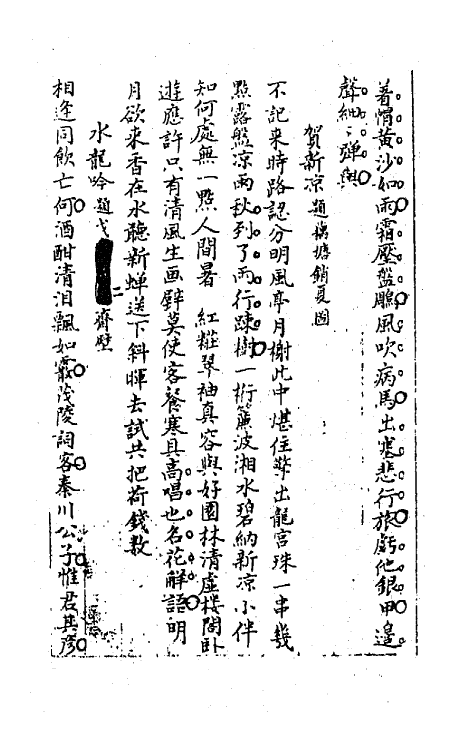 著帽黄沙如雨霜壓盤鵰風吹病馬出塞悲行旅虧他銀甲邊
聲細〻彈與
賀新凉 題橫塘銷夏圖
不記来時路認分明風亭月榭此中堪住擎出龍宮珠一串幾
點露盤凉雨秋到了兩行踈樹一桁簾波湘水碧納新凉小伴
知何處無一點人間暑 紅粧翠袖真容與好園林清虛樓閣臥
遊應許只有清風生画壁莫使客餐寒具高唱也名花解語明
月欲来香在水聽新蟬送下斜暉去試共把荷錢數
水龍吟 題戈 齋壁
相逢同飲亡何酒酣清泪飄如霰茂陵詞客秦川公子惟君其彦